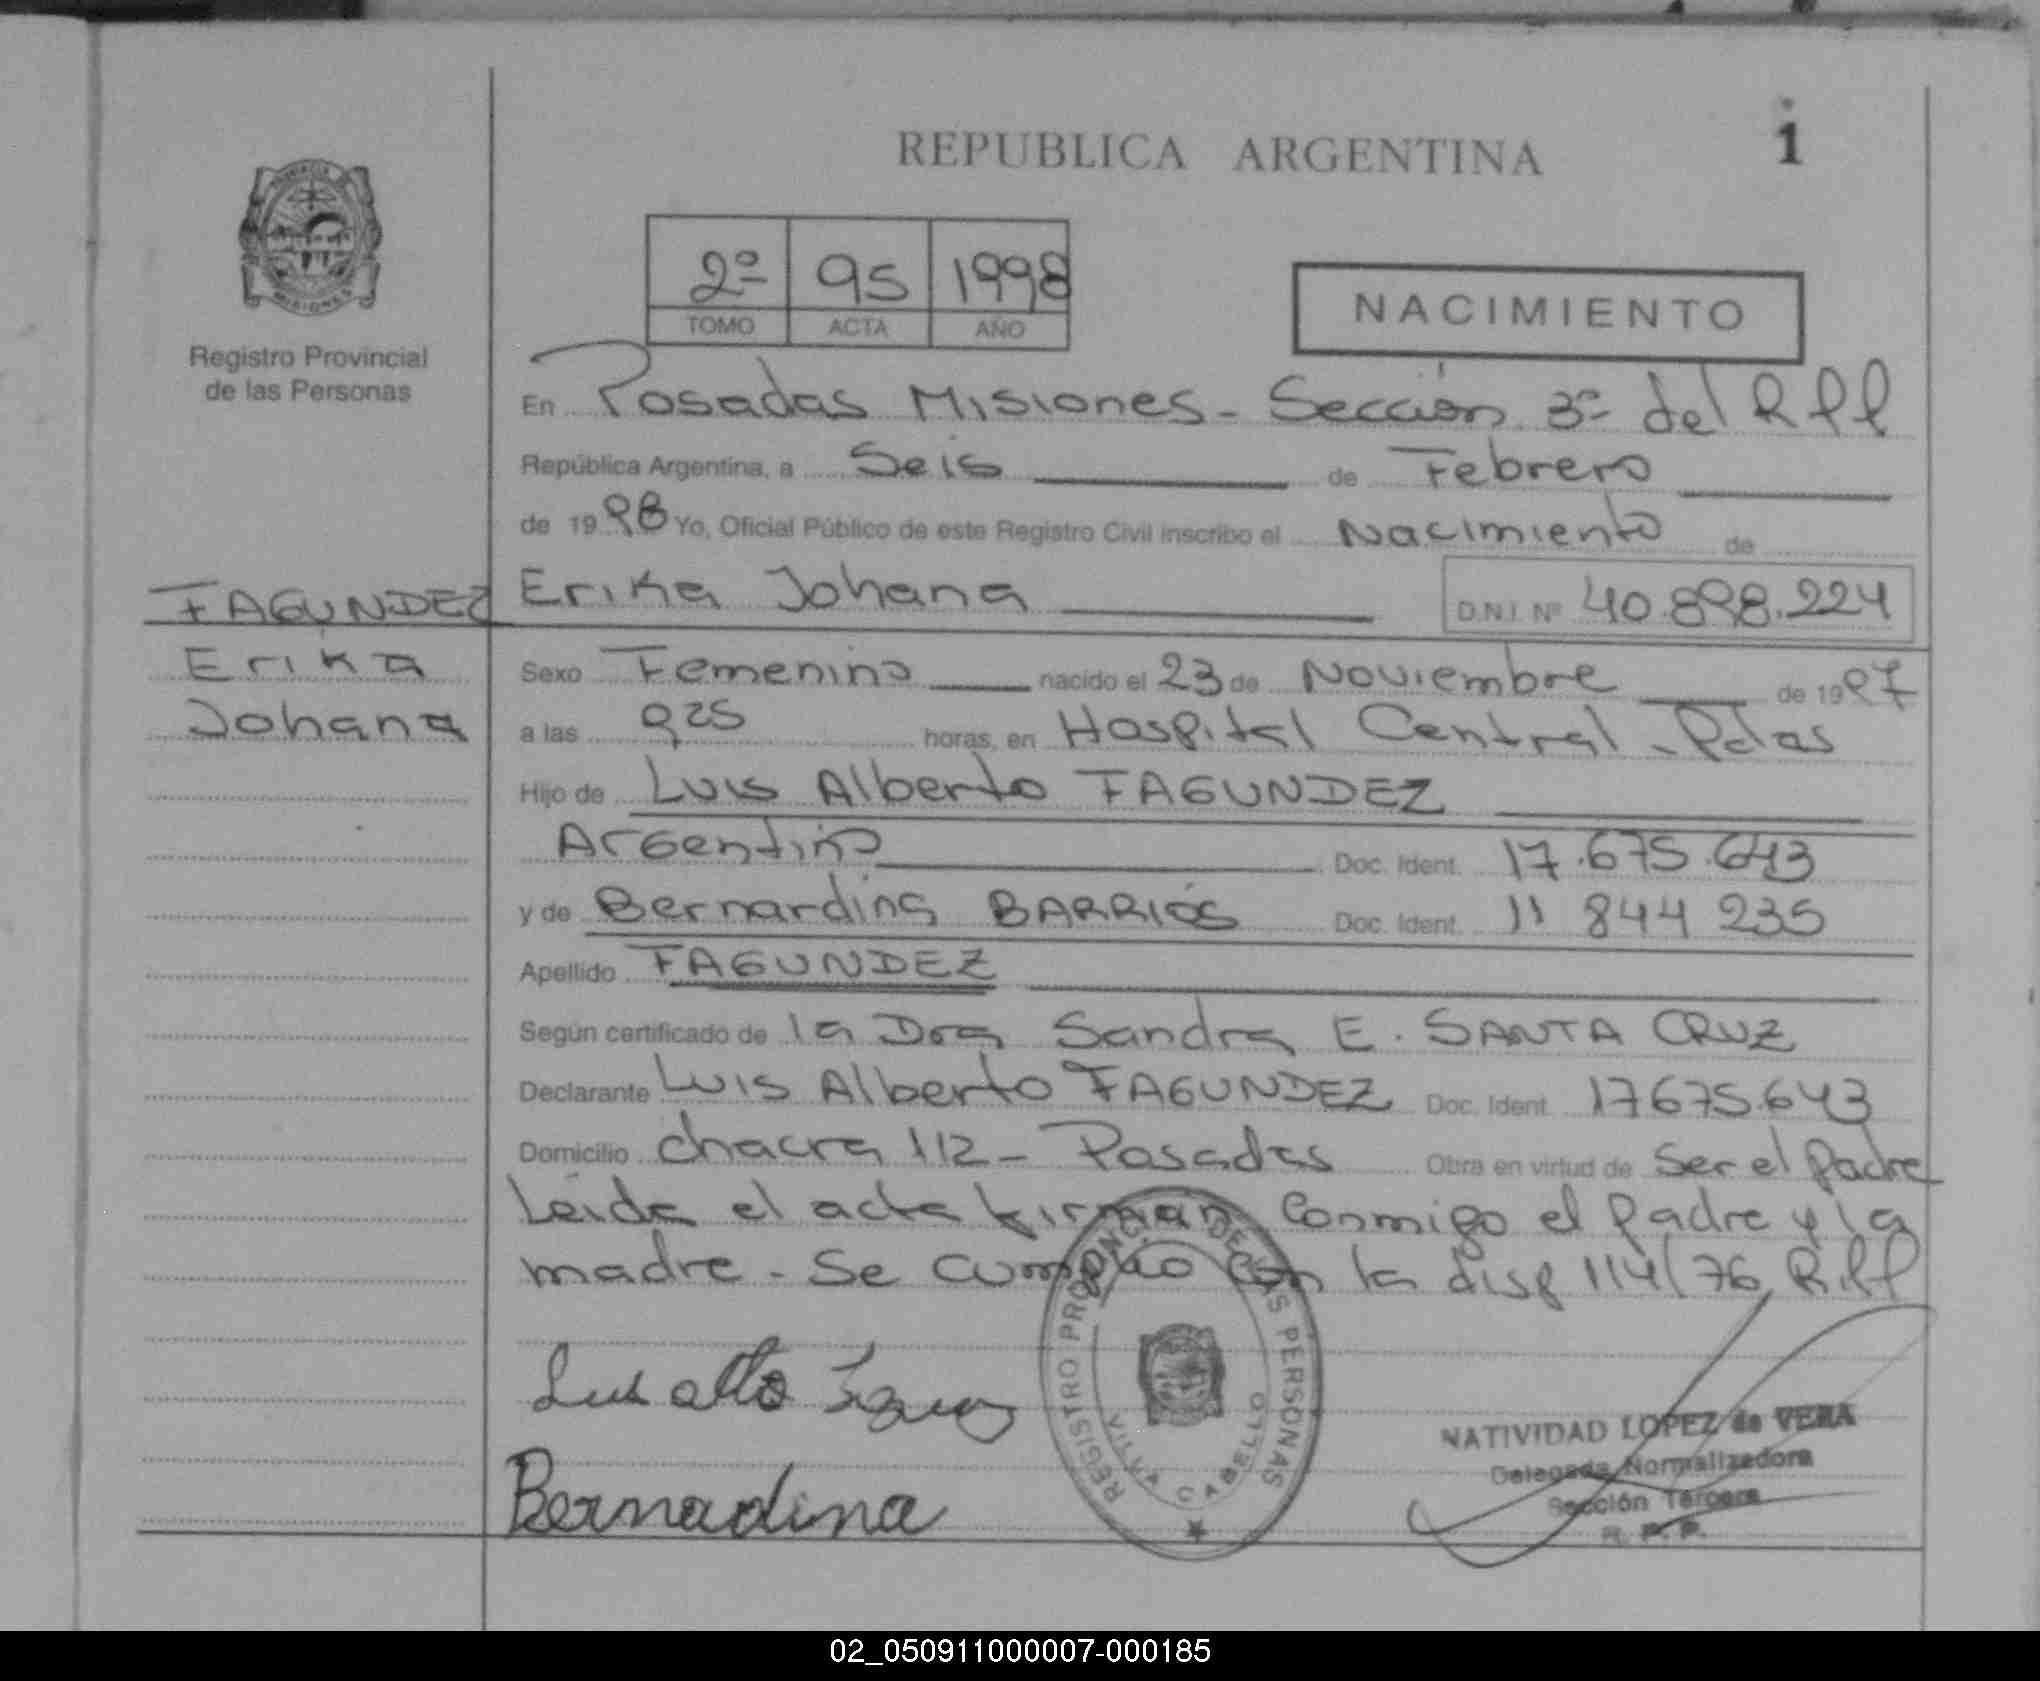 REPUBLICA ARGENTINA
1
PROVINCIA DE
MISIONES
Registro Provincial
de las Personas
2º 95 1998
TOMO ACTA AÑO
NACIMIENTO
En Posadas Misiones - Sección 3ª del RPP
República Argentina, a Seis de Febrero
de 1998 Yo, Oficial Público de este Registro Civil inscribo el Nacimiento de
FAGUNDEZ Erika Johana D.N.I. Nº 40.898.224
Erika
Johana
Sexo Femenino nacido el 23 de Noviembre de 1997
a las 9,25 horas, en Hospital Central - Pdas
Hijo de Luis Alberto FAGUNDEZ
Argentino Doc. Ident. 17.675.643
y de Bernardina BARRIOS Doc. Ident. 11 844 235
Apellido FAGUNDEZ
Según certificado de la Dra Sandra E. SANTA CRUZ
Declarante Luis Alberto FAGUNDEZ Doc. Ident. 17675.643
Domicilio chacra 112 - Posadas Obra en virtud de Ser el padre
Leida el acta firman conmigo el padre y la
madre - Se cumplio con la disp 114/76 R.PP
REGISTRO PROVINCIAL DE LAS PERSONAS
VILLA CABELLO
Luis
Bernadina
NATIVIDAD LOPEZ de VERA
Delegada Normalizadora
Sección Tercera
R. P. P.
02_050911000007-000185